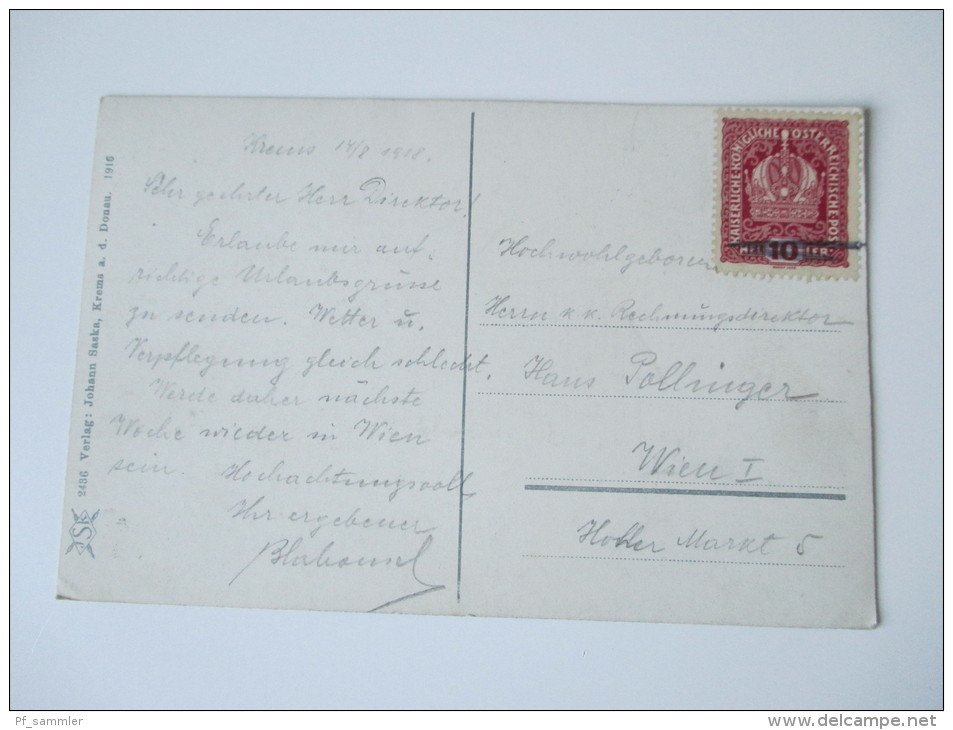 Krems 14/8 1918.
Sehr geehrter Herr Direktor!
Erlaube mir auf-
richtige Urlaubsgrüsse
zu senden. Wetter u.
Verpflegung gleich schlecht.
Werde daher nächste
Woche wieder in Wien
sein. Hochachtungsvoll
Ihr ergebener
2436 Verlag: Johann Saska, Krems a. d. Donau. 1916
KAISERLICHE KÖNIGLICHE ÖSTERREICHISCHE POST
10
Hochwohlgeboren
Herrn k. k. Rechnungsdirektor
Hans Pollinger
Wien I
Hoher Markt 5
Pf_sammler
www.delcampe.net